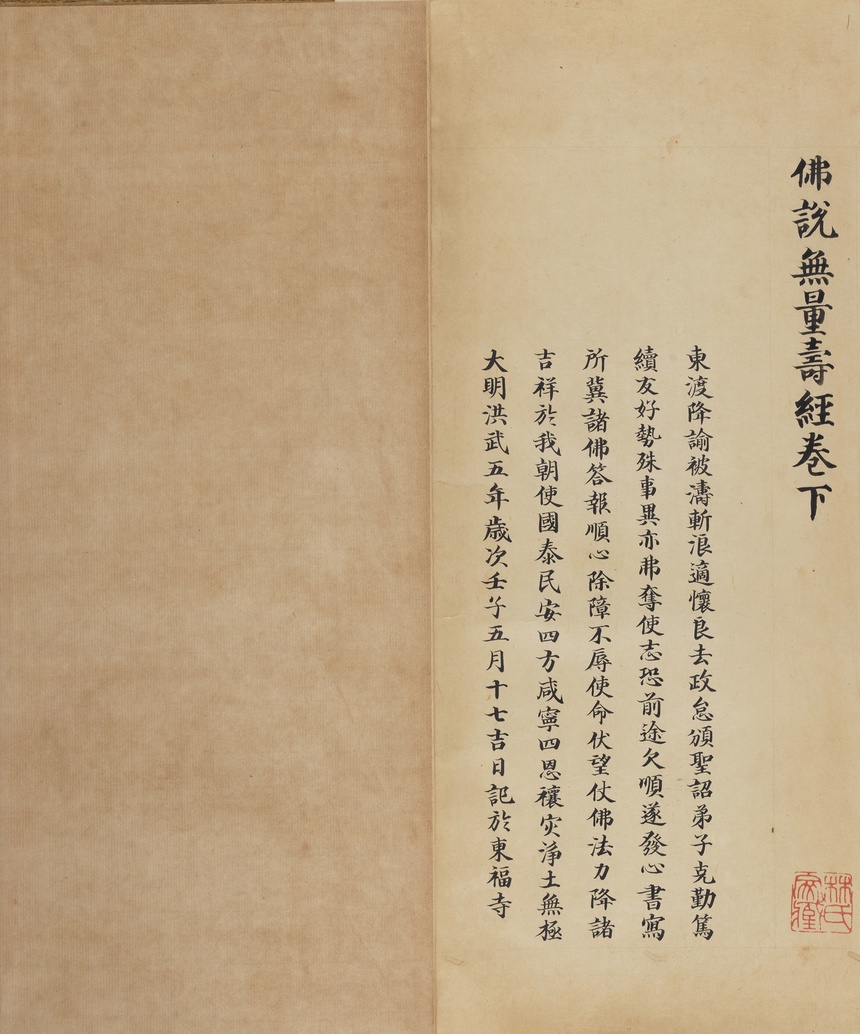 佛說無量壽經卷下
東渡降諭被濤斬浪適懷良去政怠頒聖詔弟子克勤篤
續友好勢殊事異亦弗奪使志恐前途欠順遂發心書寫
所冀諸佛答報順心除障不辱使命伏望仗佛法力降諸
吉祥於我朝使國泰民安四方咸寧四恩禳灾淨土無極
大明洪武五年歲次壬子五月十七吉日記於東福寺
林氏